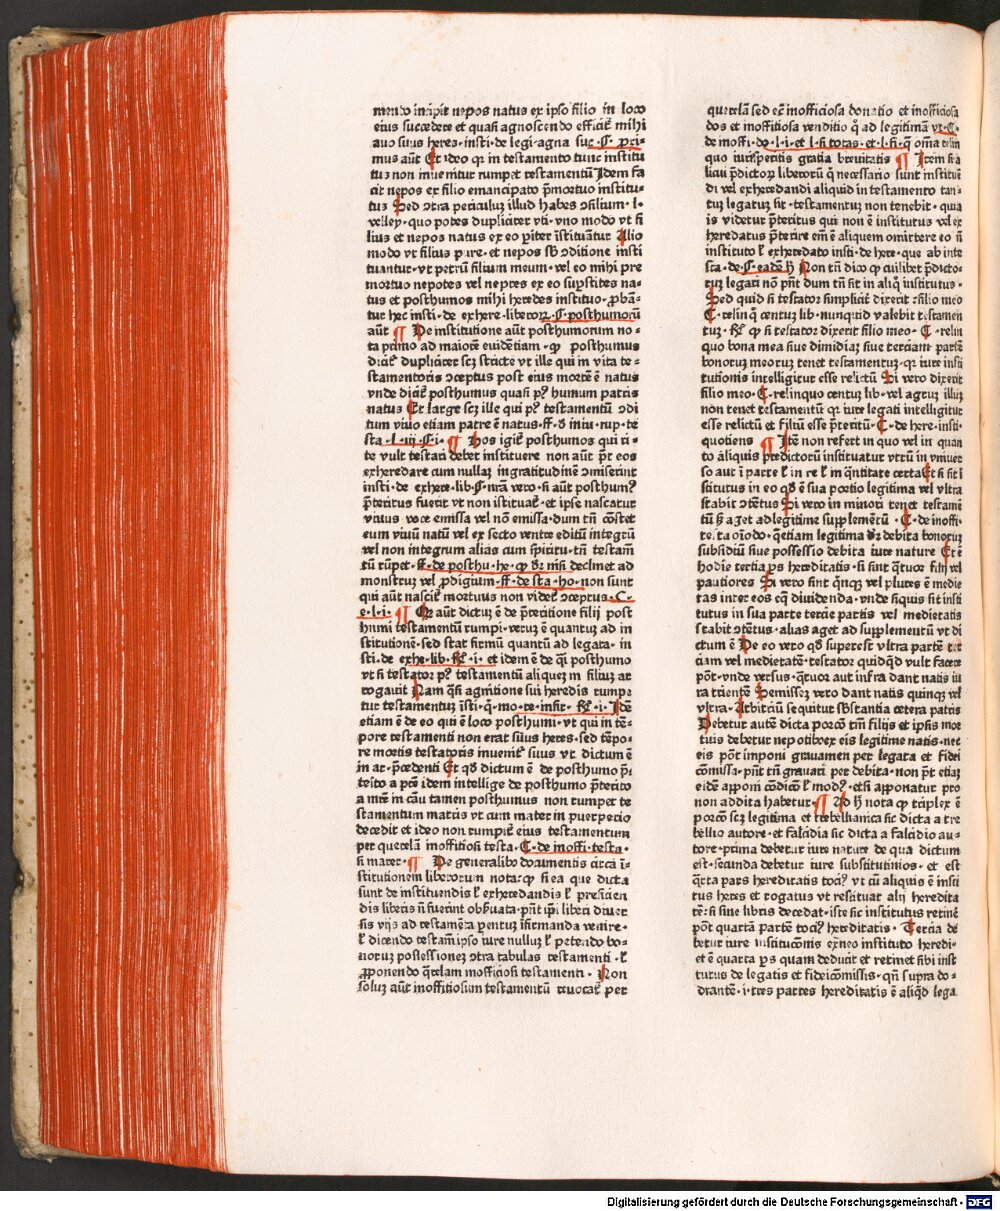 mendo incipit nepos natus ex ipso filio in loco
eius succedere et quasi agnoscendo efficit᷑ mihi
auo suus heres·insti·de legi·agna suc·§·pꝛi-
mus aūt Et ideo qꝛ in testamento tunc institu
tus non inuenitur rumpet testamentū Idem fa
cit nepos ex filio emancipato p̄mortuo institu-
tus Sed ↄtra periculuꝫ illud habes ↄsilium·l·
velley·quo potes dupliciter vti·vno modo vt fi
lius et nepos natus ex eo pariter īstituātur Alio
modo vt filius pure·et nepos sb̄ ↄditione insti
tuantur·vt petrū filium meum·vel eo mihi pre
mortuo nepotes vel neptes ex eo suꝑstites na-
tus et posthumos mihi heredes instituo·ꝓbā-
tur hec insti·de exhere·liberoꝝ·§·posthumorū
aūt ¶ De institutione aūt posthumorum no-
ta primo ad maiorē euidētiam·ꝙ posthumus
dicit᷑ dupliciter scꝫ stricte vt ille qui in vita te-
stamentoris ↄceptus post eius mortē ē natus
vnde dicit᷑ posthumus quasi pꝰ humum patris
natus Et large scꝫ ille qui pꝰ testamentū ↄdi
tum viuo etiam patre ē natus·ff·d̄ iniu·rup·te
sta·l·iij·§·i· ¶ Hos igit᷑ posthumos qui ri-
te vult testari debet instituere non aūt pōt eos
exheredare cum nullaꝫ ingratitudinē ↄmiserint
insti·de exhere·lib·§·nr̄a vero·si aūt posthumꝰ
p̄teritus fuerit vt non īstituat᷑·et ipse nascatur
viuus voce emissa vel nō emissa·dum tn̄ cōstet
eum viuū natū vel ex secto ventre editū integrū
vel non integrum alias cum spiritu·tn̄ testam̄
tū rūpet·ff·de posthu·he·ꝙ dr̄ nisi declinet ad
monstruꝫ vel ꝓdigium·ff·de sta·ho·non sunt
qui aūt nascit᷑ mortuus non videt᷑ ↄceptus·C·
e·l·i· ¶ Qꝛ aūt dictuꝫ ē de p̄teritione filij post
humi testamentū rumpi·veruꝫ ē quantuꝫ ad in
stitutionē·sed stat firmū quantū ad legata·in
sti·de exhe·lib·§·i·et idem ē de eo qui posthumo
vt si testator pꝰ testamentū aliqueꝫ in filiuꝫ ar
rogauit Nam quasi agnitione sui heredis rumpi
tur testamentuꝫ īsti·q̄·mo·te·infir·§·i·Idē
etiam ē de eo qui ē loco posthumi·vt qui in tē-
pore testamenti non erat suus heres·sed tēpo-
re mortis testatoris inuenit᷑ suus vt dictum ē
in ar·p̄cedenti Et qd̄ dictum ē de posthumo p̄-
terito a pr̄e idem intellige de posthumo p̄terito
a mr̄e in cāu tamen posthumus non rumpet te
stamentum matris vt cum mater in puerperio
decedit et ideo non rumpit᷑ eius testamentum
per querelā inofficiosi testa·C·de inoffi·testa·
si mater· ¶ De generalibꝰ documentis circa ī-
stitutionem liberorum nota·ꝙ si ea que dicta
sunt de instituendis l̄ exheredandis l̄ preterien
dis liberis nō fuerint obẜuata·pn̄t ipsi liberi diuer
sis vijs ad testamēta parentuꝫ īfirmanda venire·
l̄ dicendo testam̄ ipso iure nulluꝫ l̄ petendo bo-
noruꝫ possessioneꝫ ↄtra tabulas testamenti·l̄
apponendo q̄relam inofficiosi testamenti·Non
soluꝫ aūt inofficiosum testamentū reuocat᷑ per
querelā sed ecꝫ inofficiosa donatio et inofficiosa
dos et inofficiosa venditio q̄ ad legitimā vt·C·
de inoffi·do·l·i·et l·si totas·et l·fi·q̄ omīa relin
quo iurisperitis gratia breuitatis ¶ Item si a
licui p̄dictoꝝ liberorū q̄ necessario sunt instituē
di vel exheredandi aliquid in testamento tan-
tuꝫ legatuꝫ sit·testamentuꝫ non tenebit·quia
is videtur p̄teritus qui non ē institutus vel ex
heredatus p̄terire em̄ ē aliquem omittere eo nō
instituto l̄ exheredato insti·de here·que ab inte
sta·de·§·eadē h Non tn̄ dico ꝙ cuilibet p̄dicto-
ruꝫ legari nō pn̄t dum tn̄ sit in aliq̄ institutus·
Sed quid si testator simplicit᷑ dixerit ↄfilio meo
C·relinq̄ centuꝫ lib·nunquid valebit testamen
tuꝫ·§·ꝙ si testator dixerit filio meo·C·relin
quo bona mea siue dimidiaꝫ siue terciam partē
bonoruꝫ meoruꝫ tenet testamentuꝫ·qꝛ iure insti
tutionis intelligitur esse relictū Si vero dixerit
filio meo·C·relinquo centuꝫ lib·vel agruꝫ illuꝫ
non tenet testamentū qꝛ iure legati intelligitur
esse relictū et filiū esse p̄teritū·C·de here·insti·
quotiens ¶ Itē non refert in quo vel in quan
to aliquis predictorū instituatur vtrū in vniuer
so aut ī parte l̄ in re l̄ in q̄ntitate certa Et si sit ī
stitutus in eo qd̄ ē sua portio legitima vel vltra
stabit ↄtētus Si vero in minori tenet testamē
tū sꝫ aget ad legitime supplemētū·C·de inoffi·
te·l·oīodo·q̄ etiam legitima dr̄ debita bonoruꝫ
subsidiū siue possessio debita iure nature Et ē
hodie tertia pars hereditatis·si sint q̄tuor filij vel
pautiores Si vero sint q̄nqꝫ vel plures ē medie
tas inter eos eq̄ diuidenda·vnde siquis sit insti
tutus in sua parte tertie partis vel medietatis
stabit ↄtētus·alias aget ad supplementū vt di
ctum ē De eo vero qd̄ superest vltra partē ter
ciam vel medietatē·testator quidq̄d vult facere
pōt·vnde versus·q̄tuor aut infra dant natis iu
ra trientē Semisseꝫ vero dant natis quinqꝫ vel
vltra·Arbitriū sequitur sb̄stantia cetera patris
Debetur autē dicta porcō tm̄ filijs et ipsis mor
tuis debetur nepotibꝰ ex eis legitime natis·nec
eis pōt imponi grauamen per legata et fidei
cōmissa·pn̄t tn̄ grauari per debita·non pōt etiaꝫ
eidē apponi cōdicō l̄ modꝰ·etsi apponatur pro
non addita habetur· ¶ Ad h nota ꝙ triplex ē
porcō scꝫ legitima et trebellianica sic dicta a tre
bellio autore·et falcidia sic dicta a falcidio au-
tore·prima debetur iure nature de qua dictum
est·secunda debetur iure substitutinios·et est
q̄rta pars hereditatis tociꝰ vt cū aliquis ē insti
tus heres et rogatus vt restituat alij heredita
tē·si sine libris decedat·iste sic institutus retinē
pōt quartā partē tociꝰ hereditatis·Tercia de
betur iure institucōnis extraneo instituto heredi-
et ē quarta pars quam deducit et retinet sibi insti
tutus de legatis et fideicōmissis·qn̄ supra do-
drantē·i·tres partes hereditatis ē aliq̄d lega
Digitalisierung gefördert durch die Deutsche Forschungsgemeinschaft - DFG